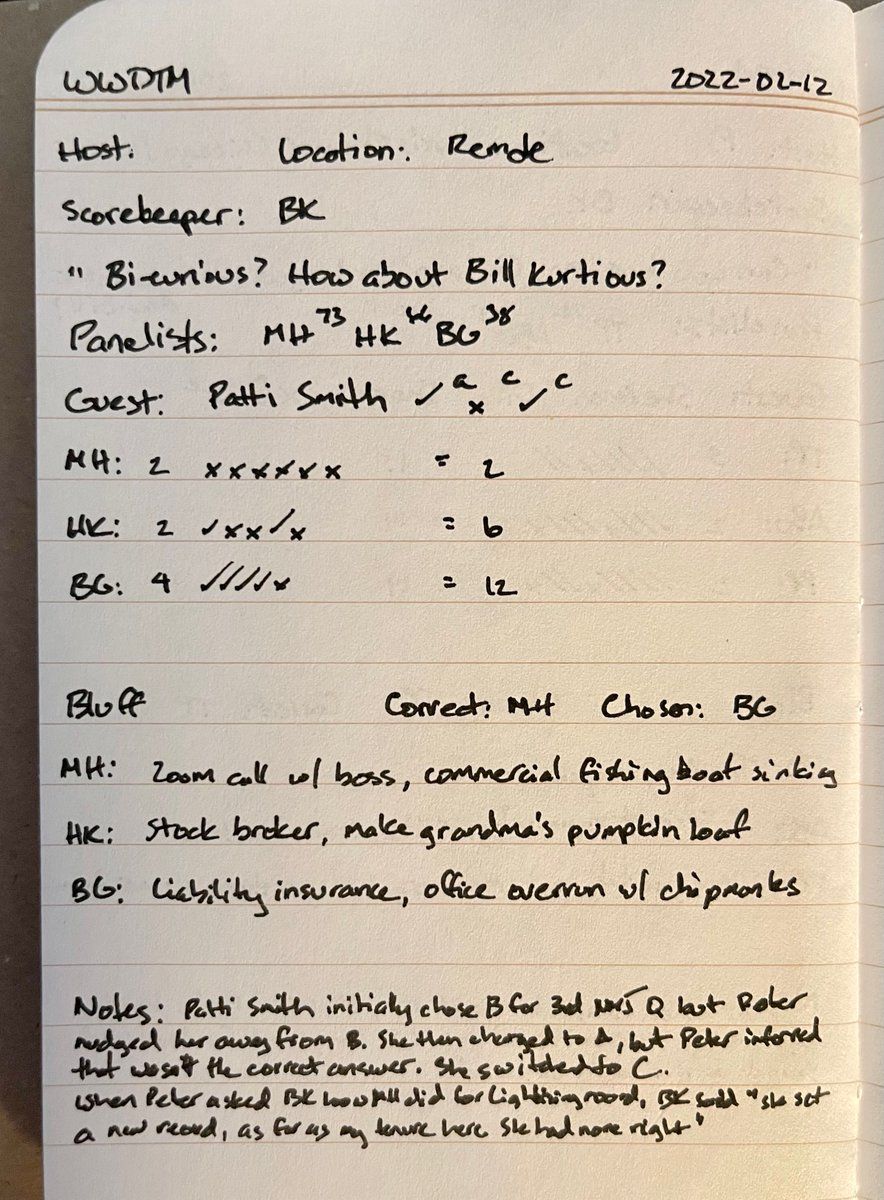 WWDTM 2022-02-12
Host: Location: Remote
Scorekeeper: BK
" Bi-curious? How about Bill Kurtious?
Panelists: MH 73 HK BG 38
Guest: Patti Smith ✓ a x c ✓ c
MH: 2 x x x x x x = 2
HK: 2 ✓ x x ✓ x = 6
BG: 4 ✓ ✓ ✓ ✓ x = 12
Bluff Correct: MH Chosen: BG
MH: Zoom call w/ boss, commercial fishing boat sinking
HK: Stock broker, make grandma's pumpkin loaf
BG: Liability insurance, office overrun w/ chipmonks
Notes: Patti Smith initialy chose B for 3rd NMJ Q but Peter
nudged her away from B. She then changed to A, but Peter inferred
that wasn't the correct answer. She switched to C.
When Peter asked BK how MH did for Lightning round, BK said "she set
a new record, as far as my tenure here. She had none right"